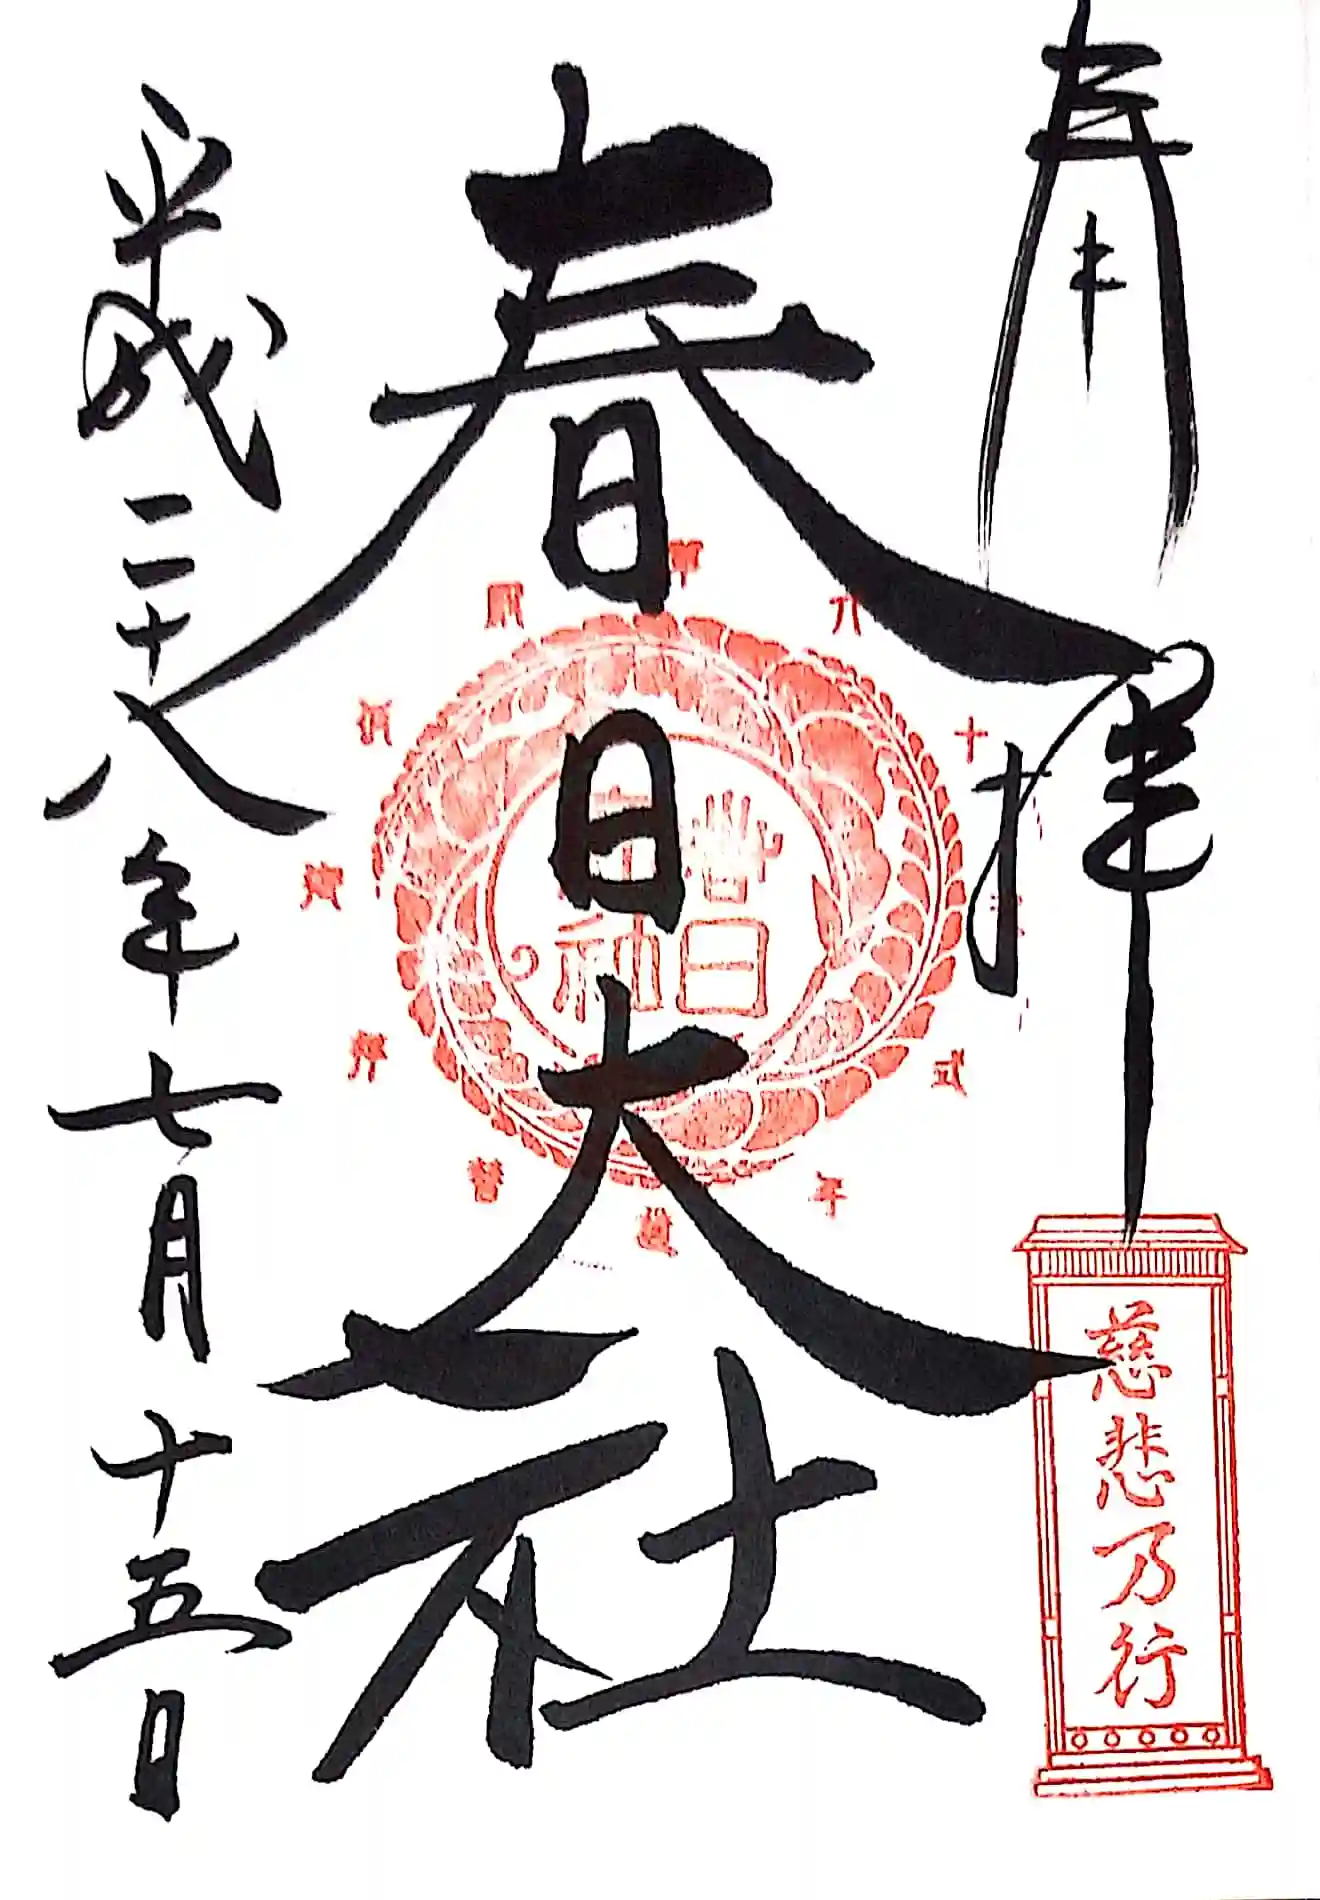 奉拝
春日大社
平成二十八年七月十五日
慈悲乃行